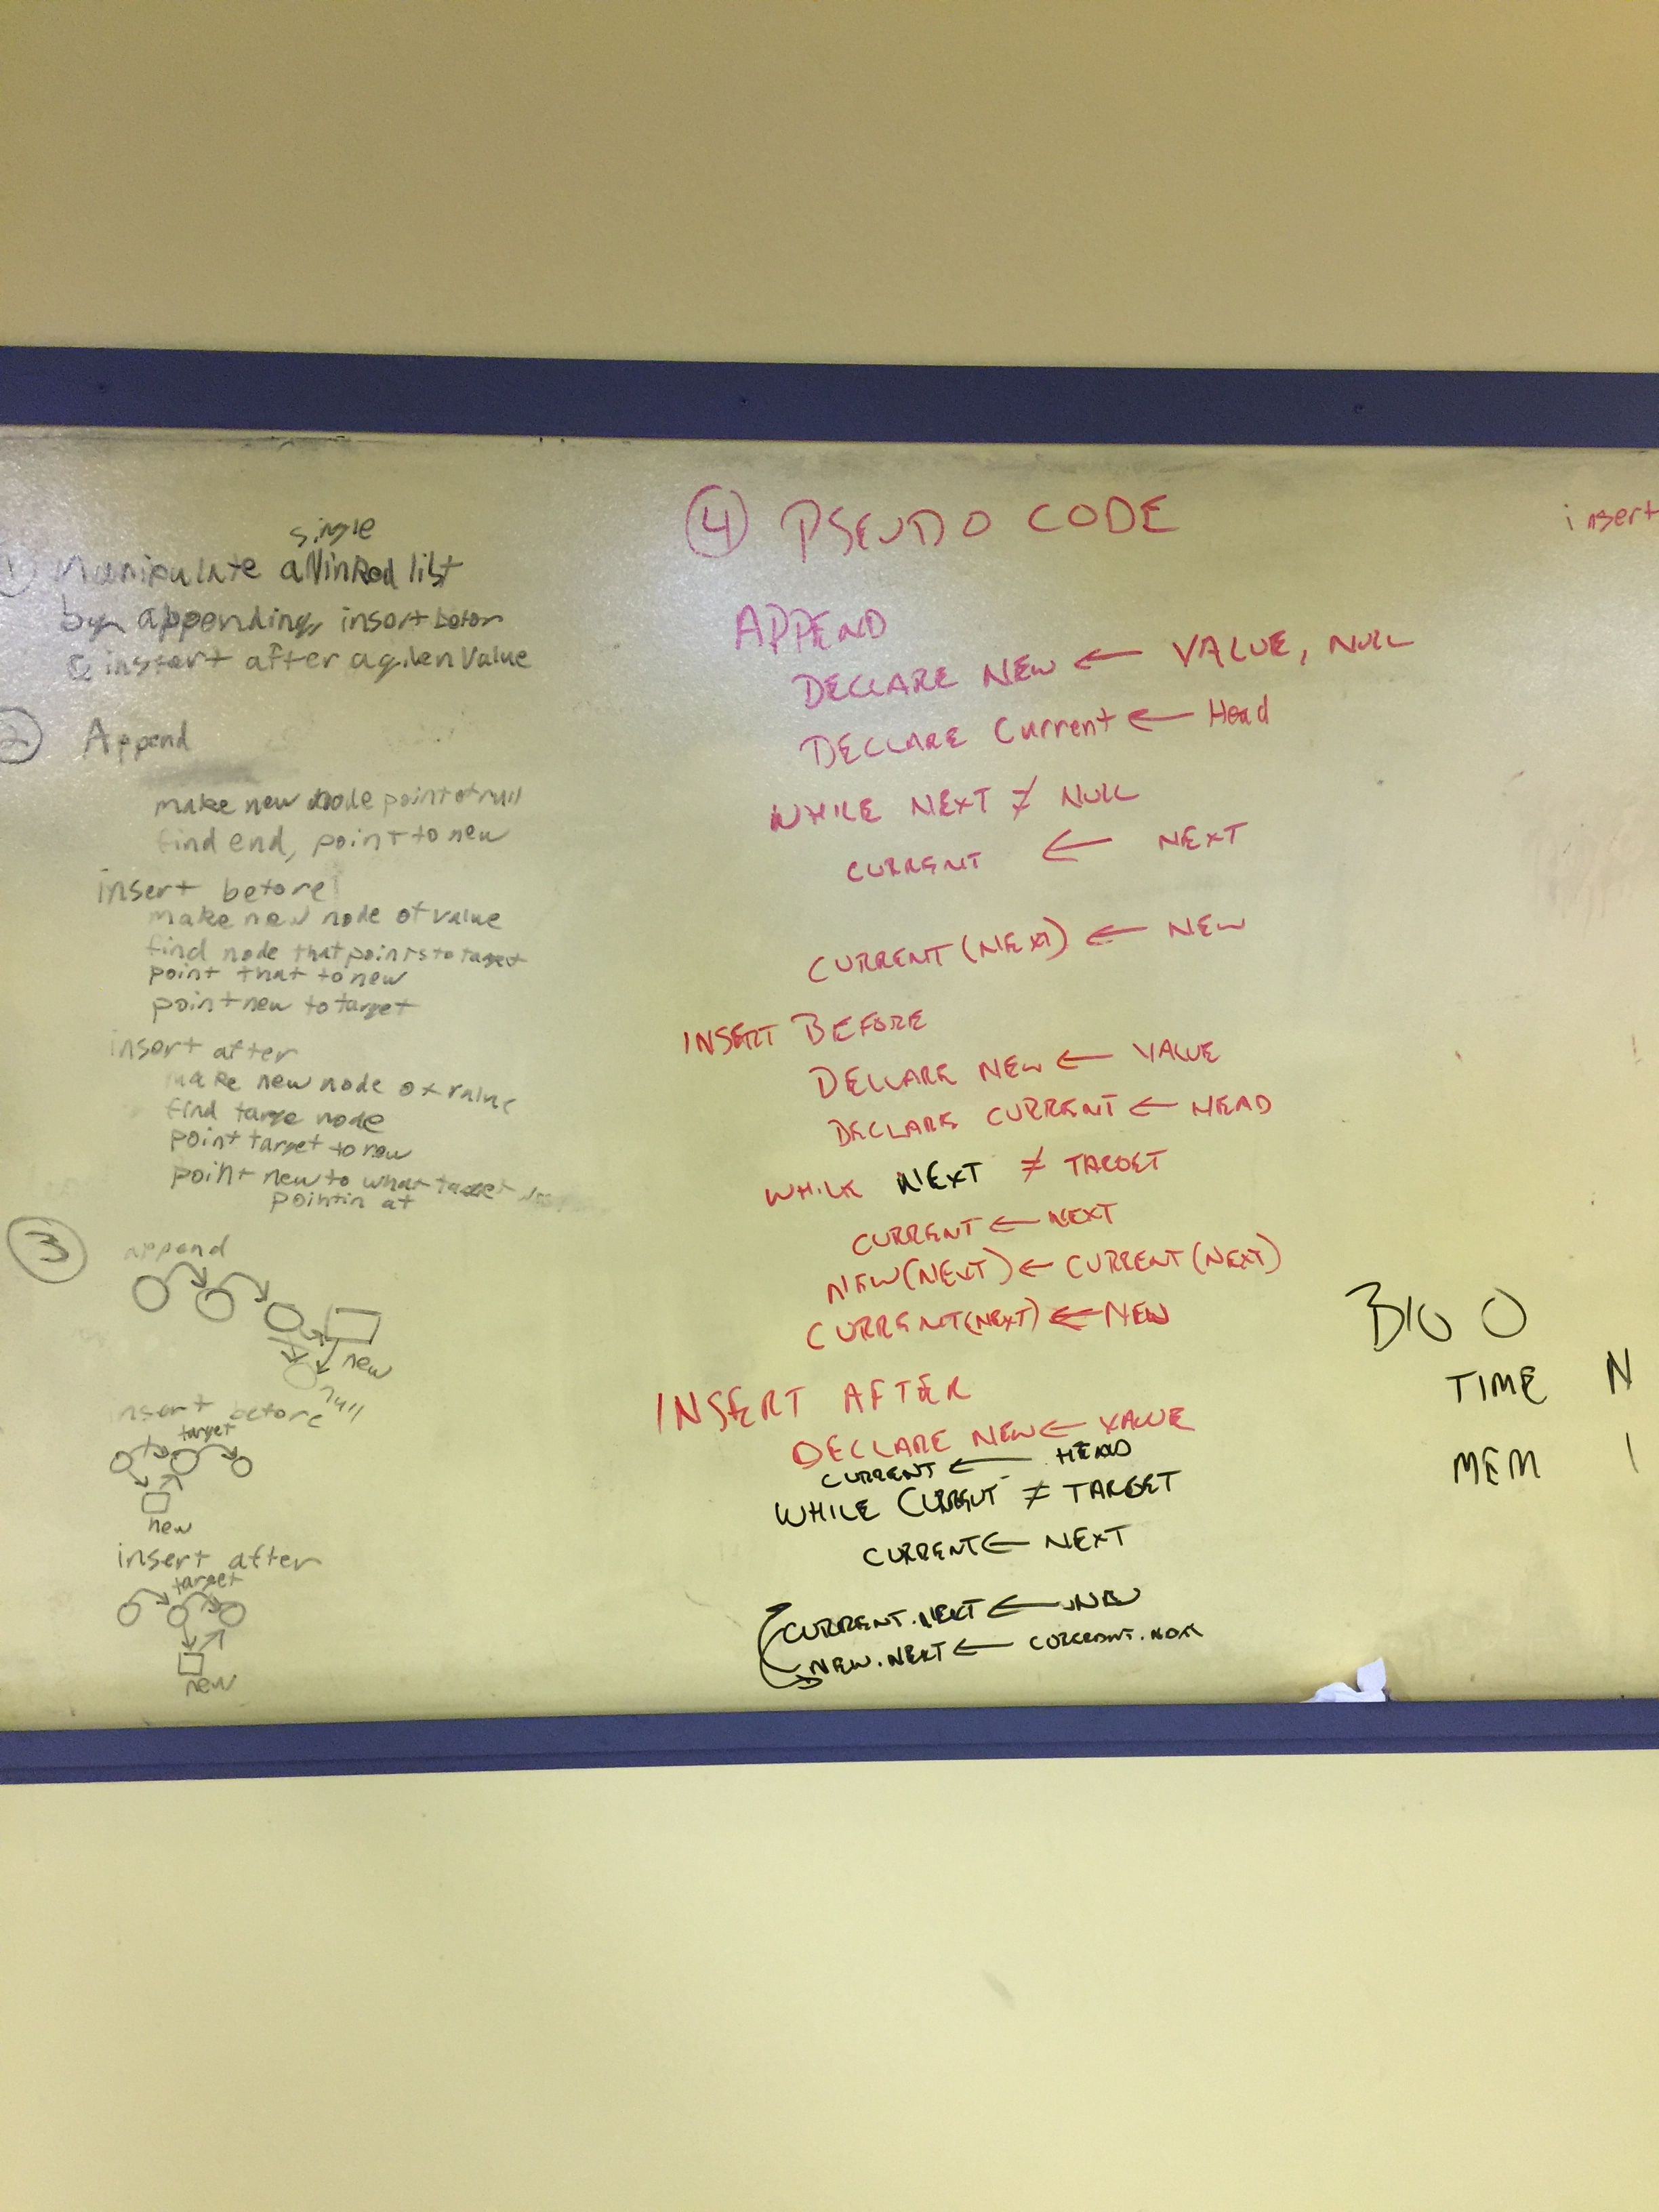 single
① Manipulate a linked list
by appending, insert before
& instert after a given value
② Append
make new node point at null
find end, point to new
insert before
make new node of value
find node that points to target
point that to new
point new to target
insert after
make new node of value
find targe node
point target to new
point new to what target
pointin at
③ append
new
null
insert before
target
new
insert after
target
new
④ PSEUDO CODE
APPEND
DECLARE NEW ← VALUE, NULL
DECLARE Current ← Head
WHILE NEXT ≠ NULL
CURRENT ← NEXT
CURRENT (NEXT) ← NEW
INSERT BEFORE
DECLARE NEW ← VALUE
DECLARE CURRENT ← HEAD
WHILE NEXT ≠ TARGET
CURRENT ← NEXT
NEW(NEXT) ← CURRENT(NEXT)
CURRENT(NEXT) ← NEW
INSERT AFTER
DECLARE NEW ← VALUE
CURRENT ← HEAD
WHILE CURRENT ≠ TARGET
CURRENT ← NEXT
CURRENT.NEXT ← NEW
NEW.NEXT ← CURRENT.NEXT
insert
BIG O
TIME N
MEM 1